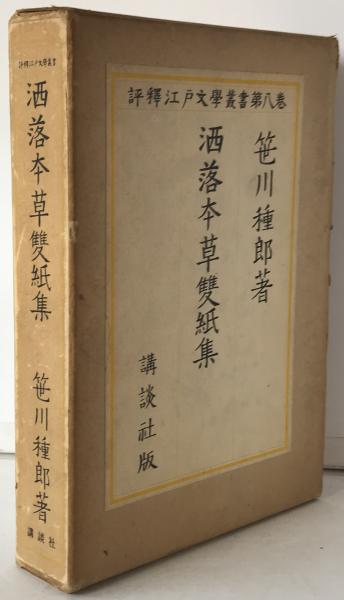 評釋江戸文學叢書第八巻
笹川種郎著
洒落本草雙紙集
講談社版
評釋江戸文學叢書
洒落本草雙紙集
笹川種郎著
講談社